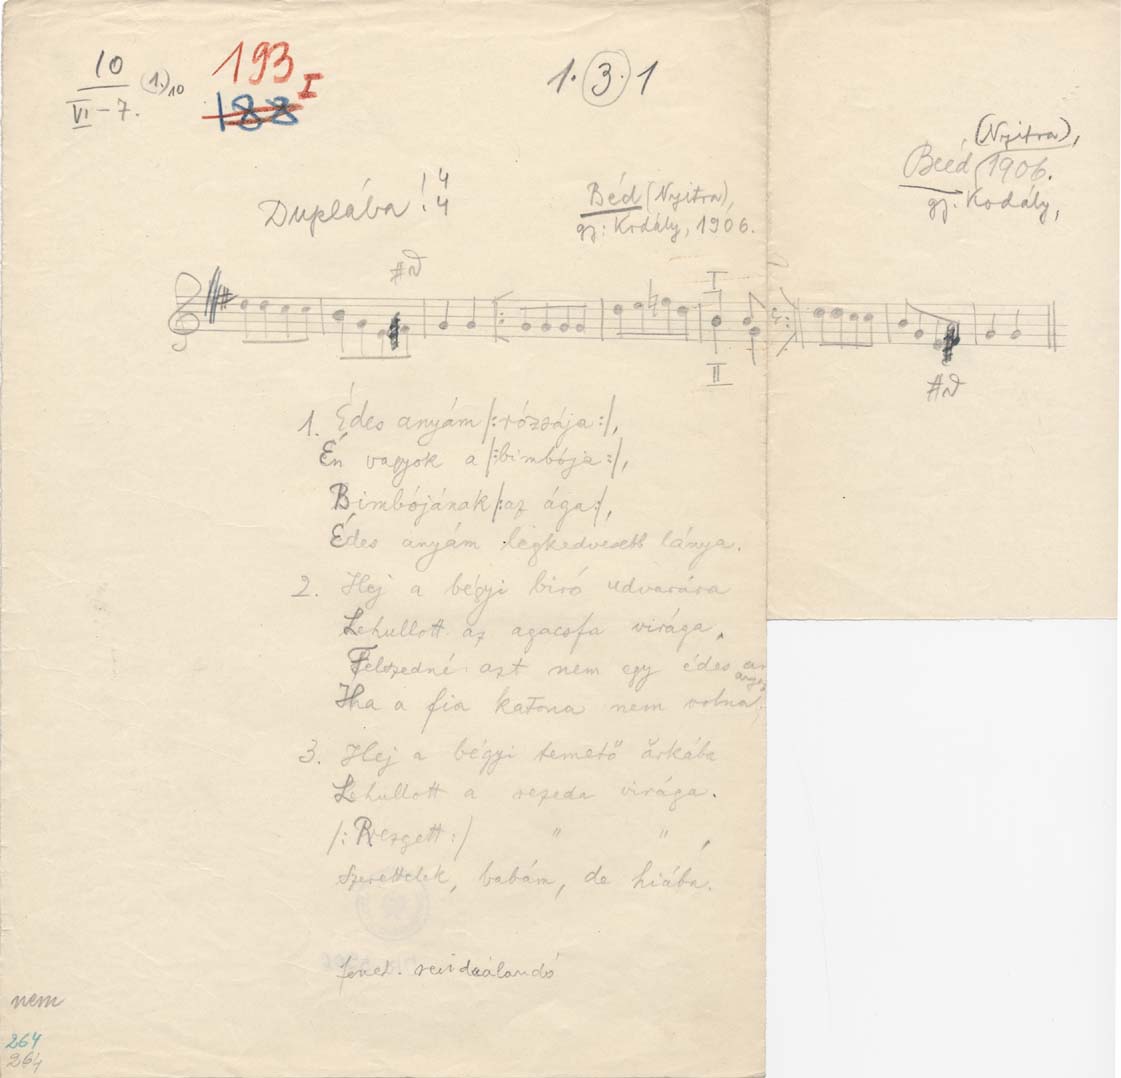 10
VI-7.
1.) 10
193 I
188
1. 3. 1
(Nyitra),
Beéd 1906.
gy: Kodály,
Duplába! 4 4
Béd (Nyitra),
gy: Kodály, 1906.
I
II
1. Édes anyám |: rózsája :|,
Én vagyok a |: bimbója :|,
Bimbójának |: az ága :|,
Édes anyám legkedvesebb lánya.
2. Hej a bégyi biró udvarára
Lehullott az agacsfa virága,
Felszedné azt nem egy édes
Hha a fia katona nem volna.
3. Hej a bégyi temető árkába
Lehullott a rezeda virága.
|: Rezgett :| " " ,
Szerettelek, babám, de hiába.
fonet. revideálandó
nem
264
264